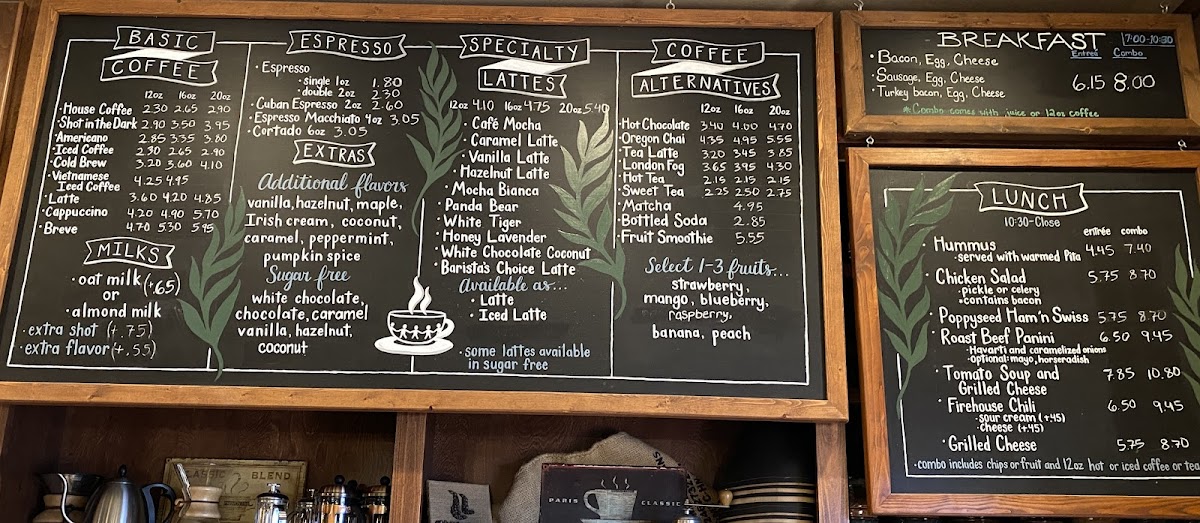 BASIC
COFFEE
12oz 16oz 20oz
·House Coffee 2.30 2.65 2.90
·Shot in the Dark 2.90 3.50 3.95
·Americano 2.85 3.35 3.80
·Iced Coffee 2.30 2.65 2.90
·Cold Brew 3.20 3.60 4.10
·Vietnamese
Iced Coffee 4.25 4.95
·Latte 3.60 4.20 4.85
·Cappuccino 4.20 4.90 5.70
·Breve 4.70 5.30 5.95
MILKS
·oat milk (+.65)
or
·almond milk
·extra shot (+.75)
·extra flavor (+.55)
ESPRESSO
·Espresso
·single 1oz 1.80
·double 2oz 2.30
·Cuban Espresso 2oz 2.60
·Espresso Macchiato 4oz 3.05
·Cortado 6oz 3.05
EXTRAS
Additional flavors
vanilla, hazelnut, maple,
Irish cream, coconut,
caramel, peppermint,
pumpkin spice
Sugar free
white chocolate,
chocolate, caramel
vanilla, hazelnut,
coconut
SPECIALTY
LATTES
12oz 4.10 16oz 4.75 20oz 5.40
·Café Mocha
·Caramel Latte
·Vanilla Latte
·Hazelnut Latte
·Mocha Bianca
·Panda Bear
·White Tiger
·Honey Lavender
·White Chocolate Coconut
·Barista's Choice Latte
Available as...
·Latte
·Iced Latte
·some lattes available
in sugar free
COFFEE
ALTERNATIVES
12oz 16oz 20oz
·Hot Chocolate 3.40 4.00 4.70
·Oregon Chai 4.35 4.95 5.55
·Tea Latte 3.20 3.45 3.85
·London Fog 3.65 3.95 4.30
·Hot Tea 2.15 2.15 2.15
·Sweet Tea 2.25 2.50 2.75
·Matcha 4.95
·Bottled Soda 2.85
·Fruit Smoothie 5.55
Select 1-3 fruits...
strawberry,
mango, blueberry,
raspberry,
banana, peach
BREAKFAST 7:00-10:30
Entreé Combo
·Bacon, Egg, Cheese
·Sausage, Egg, Cheese 6.15 8.00
·Turkey bacon, Egg, Cheese
*Combo comes with juice or 12oz coffee
LUNCH
10:30-Close
entrée combo
·Hummus 4.45 7.40
·served with warmed Pita
·Chicken Salad 5.75 8.70
·pickle or celery
·contains bacon
·Poppyseed Ham'n Swiss 5.75 8.70
·Roast Beef Panini 6.50 9.45
·Havarti and caramelized onions
·Optional: mayo, horseradish
·Tomato Soup and 7.85 10.80
Grilled Cheese
·Firehouse Chili 6.50 9.45
·sour cream (+.45)
·cheese (+.45)
·Grilled Cheese 5.75 8.70
·combo includes chips or fruit and 12oz hot or iced coffee or tea
CLASSIC BLEND
PARIS CLASSIC